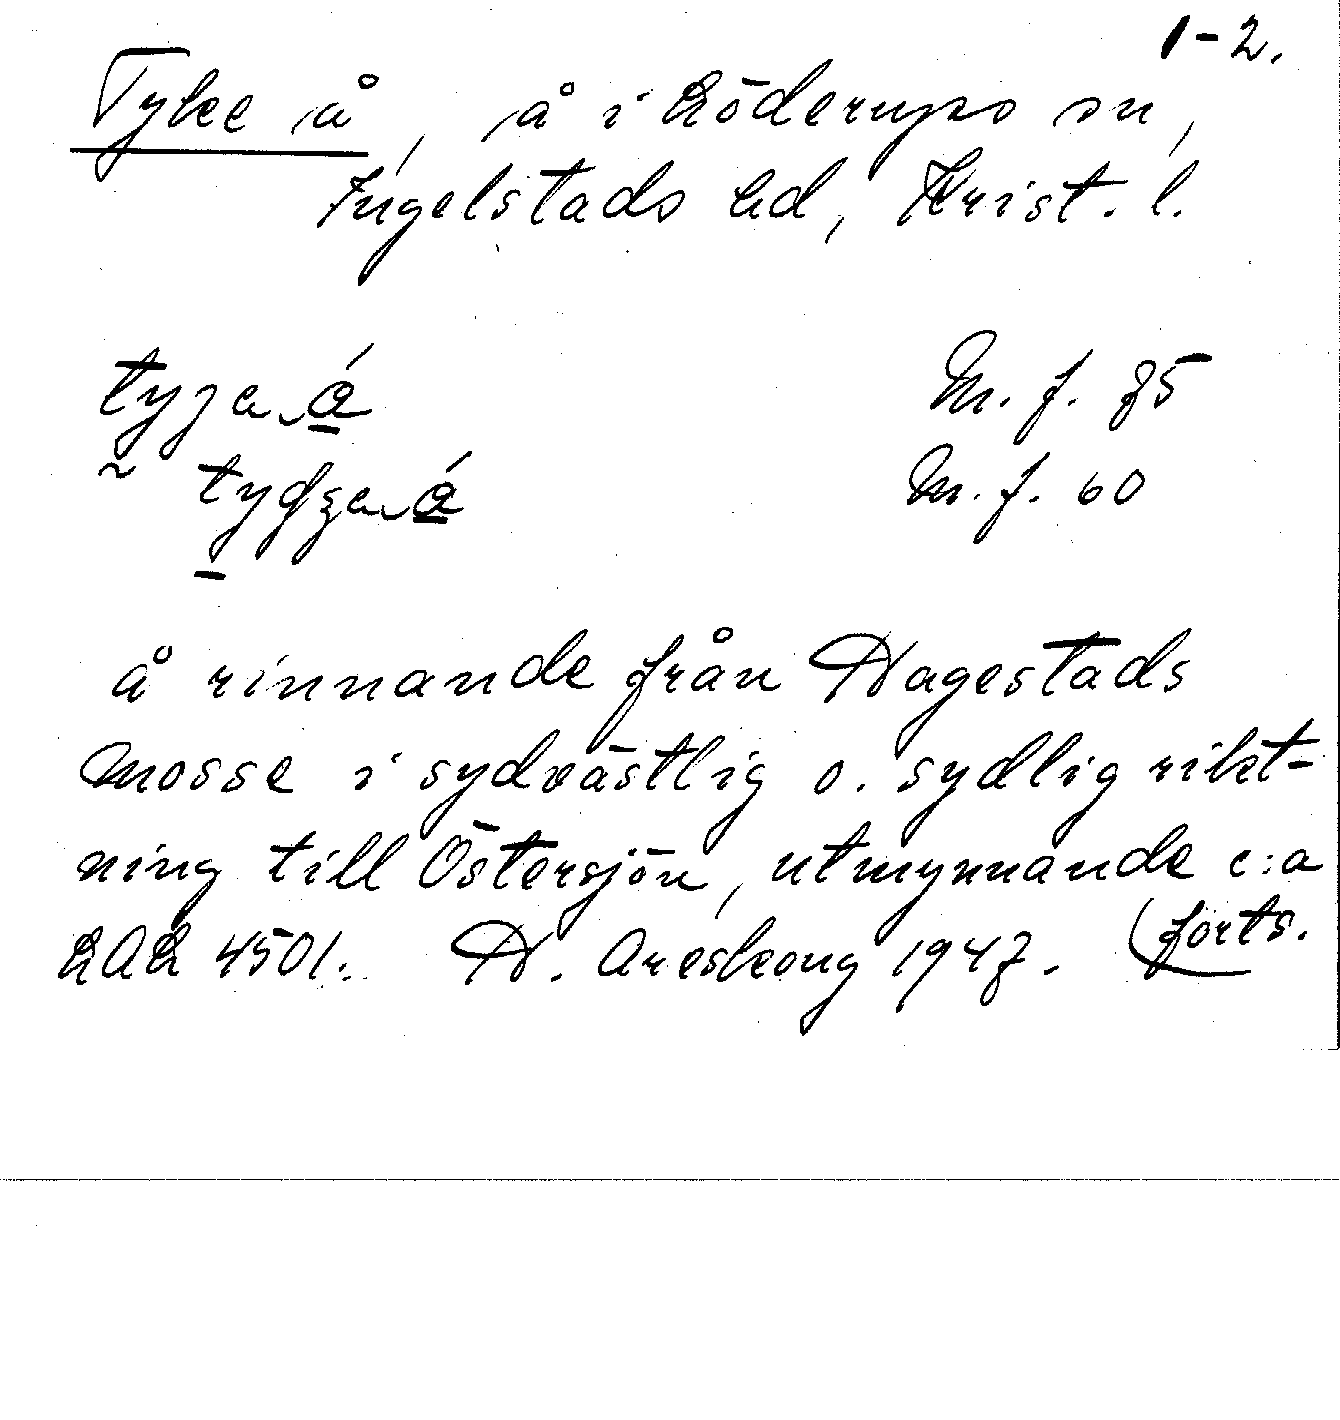 1-2.
Tyke å, å i Löderups sn,
Ingelstads hd, Krist. l.
M. f. 75
~ M. f. 60
å rinnande från Hagestads
mosse i sydvästlig o. sydlig rikt-
ning till Östersjön, utmynnande c:a
4501. H. Areskoug 1947. (forts.